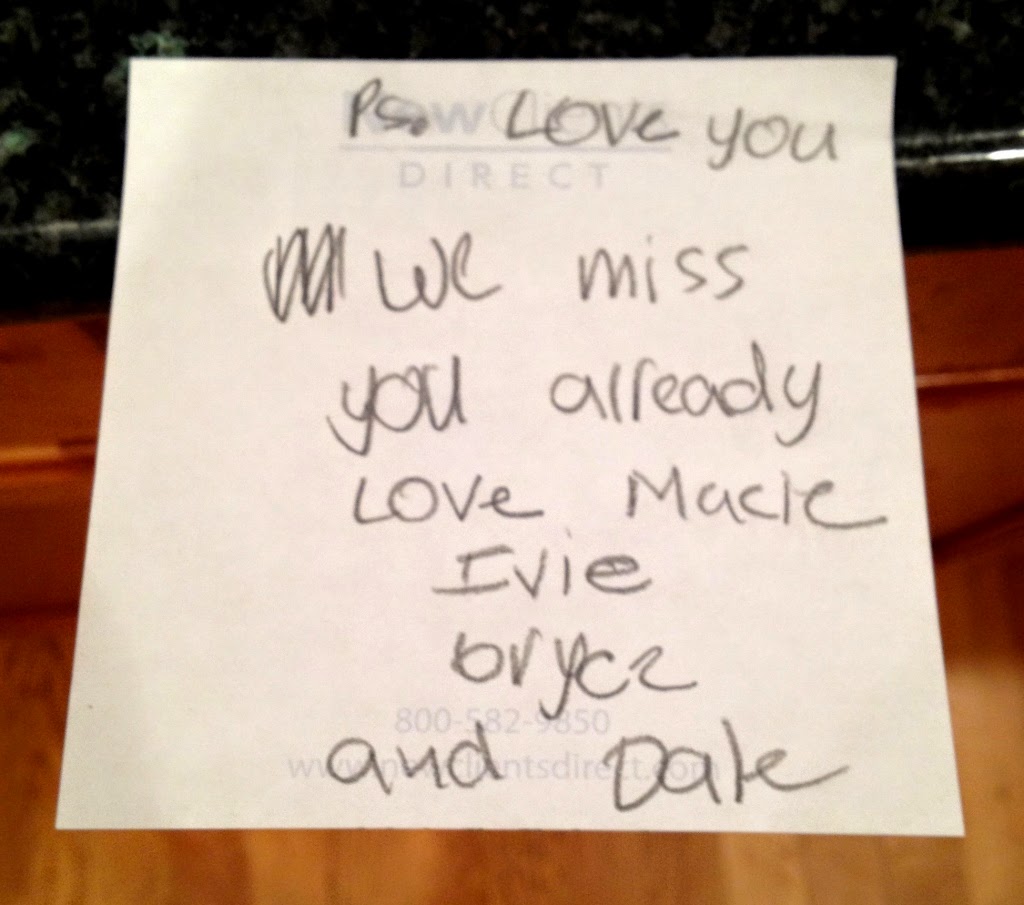 Ps. Love you
New Clients
DIRECT
We miss
you already
Love Macie
Ivie
brycе
and Dale
800-582-9850
www.newclientsdirect.com